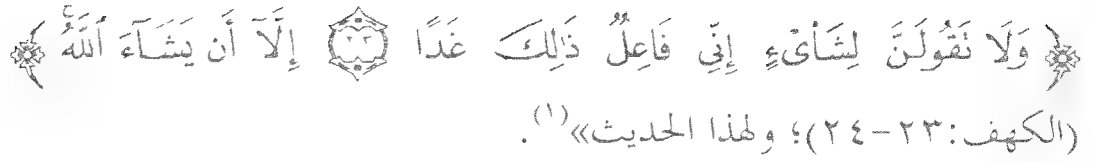 ﴿ وَلَا نَقُولَنَّ لِشَاْىْءٍ إِنِّي فَاعِلٌ ذَلِكَ غَدًا ٢٣ إِلَّآ أَن يَشَآءَ ٱللَّهُۚ ﴾
(الكهف: ٢٣-٢٤)؛ ولهذا الحديث»(١).